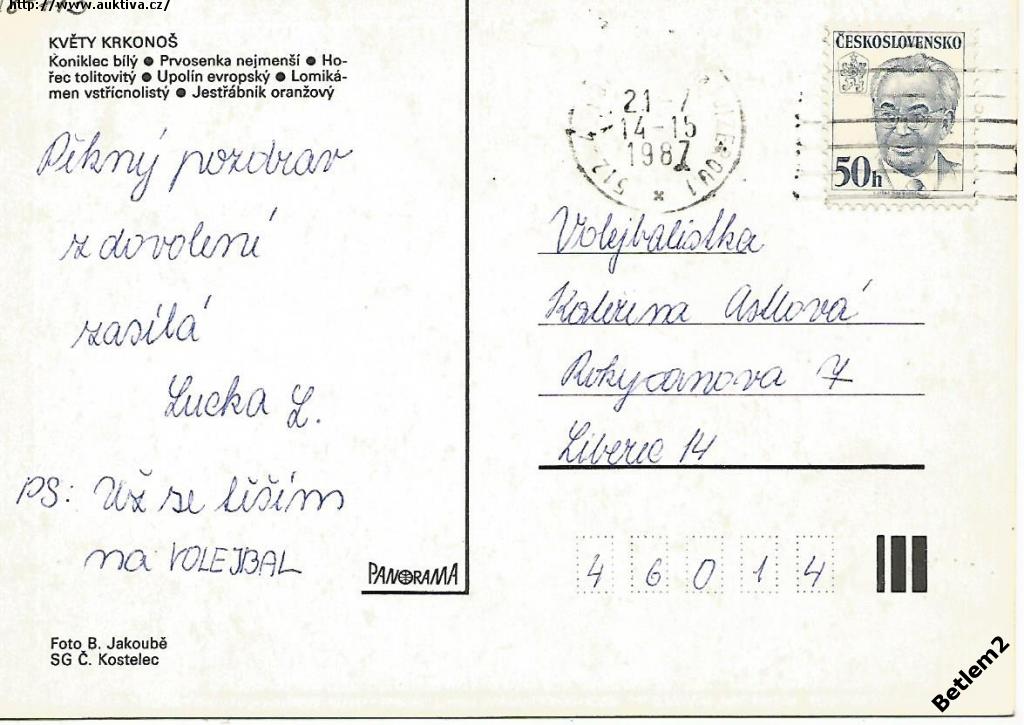 http://www.auktiva.cz/
KVĚTY KRKONOŠ
Koniklec bílý ● Prvosenka nejmenší ● Ho-
řec tolitovitý ● Upolín evropský ● Lomiká-
men vstřícnolistý ● Jestřábník oranžový
Pěkný pozdrav
z dovolení
zasílá
Lucka L.
PS: Už se těším
na VOLEJBAL
Foto B. Jakoubě
SG Č. Kostelec
PANORAMA
21-7
14-15
1987
512
ČESKOSLOVENSKO
50h
Volejbalistka
Kateřina Astlová
Rokycanova 7
Liberec 14
46014
Betlem2